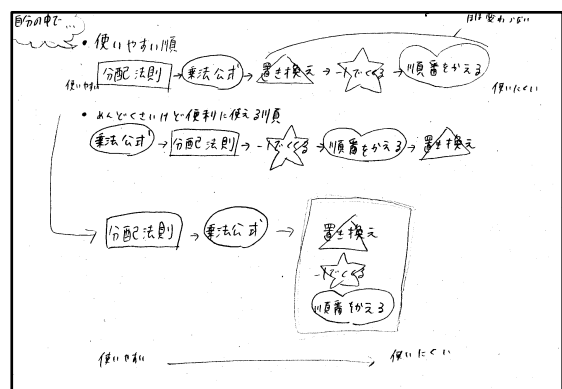 自分の中で…
ほぼ変わらない
・使いやすい順
分配法則→乗法公式→置き換え→-1でくくる→順番をかえる
使いやすい
使いにくい
・めんどくさいけど便利に使える順
乗法公式→分配法則→-1でくくる→順番をかえる→置き換え
分配法則→乗法公式→
置き換え
-1でくくる
順番をかえる
使いやすい→使いにくい